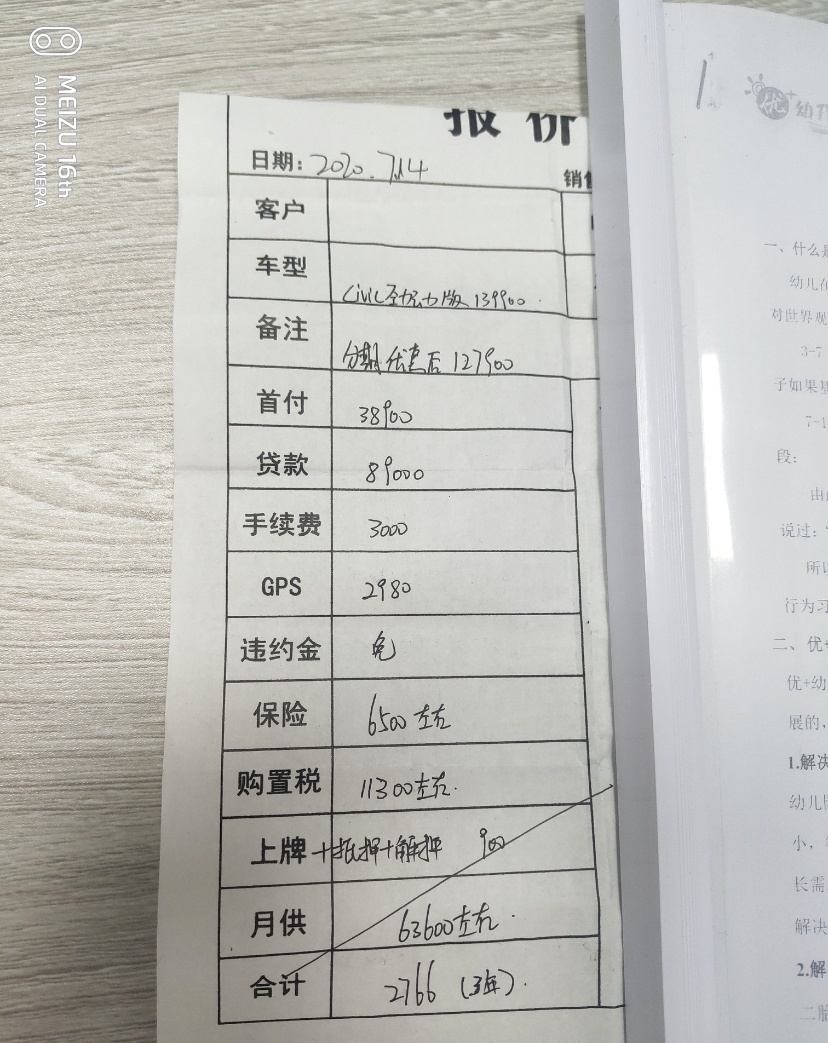 MEIZU 16th
AI DUAL CAMERA
报价
日期: 2020.7.14
销售
客户
车型 Civic 劲动版 139900.
备注 分期优惠后 127900
首付 38900
贷款 89000
手续费 3000
GPS 2980
违约金 免
保险 6500左右
购置税 11300左右.
上牌+抵押+解押 900
月供 63600左右.
合计 2766 (3年).
1
优+
幼儿
一、什么是
幼儿在
对世界观
3-7
子如果基
7-1
段:
由此
说过:
所以
行为习
二、优+
优+幼
展的、
1.解决
幼儿
小,
长需
解决
2.解
二胎